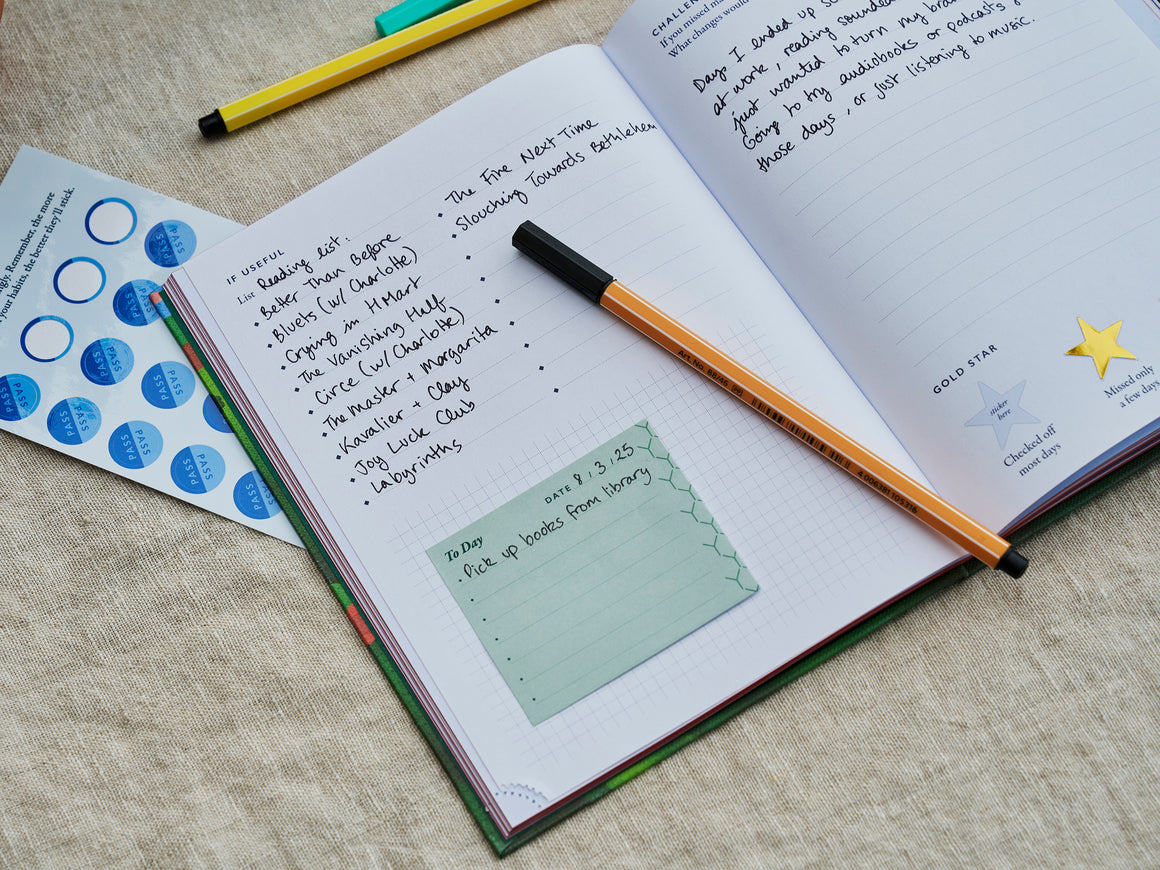 ngly. Remember, the more
your habits, the better they'll stick.
PASS
PASS
PASS
PASS
PASS
PASS
PASS
PASS
IF USEFUL
List Reading list:
• Better Than Before
• Bluets (w/ Charlotte)
• Crying in H Mart
• The Vanishing Half
• Circe (w/ Charlotte)
• The Master + Margarita
• Kavalier + Clay
• Joy Luck Club
• Labyrinths
• The Fire Next Time
• Slouching Towards Bethlehem
To Day
DATE 8.3.25
• Pick up books from library
Art. No. 88/46
4 006381 105316
If you missed
What changes would
Days I ended up
at work, reading sounded
just wanted to turn my
Going to try audiobooks or podcasts
those days, or just listening to music.
GOLD STAR
sticker
here
Checked off
most days
Missed only
a few days